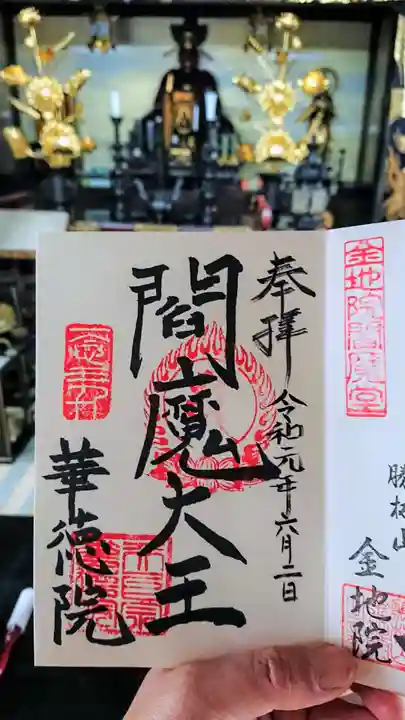 金地院閻魔堂
金地院
奉拝
令和元年六月二日
閻魔大王
華徳院